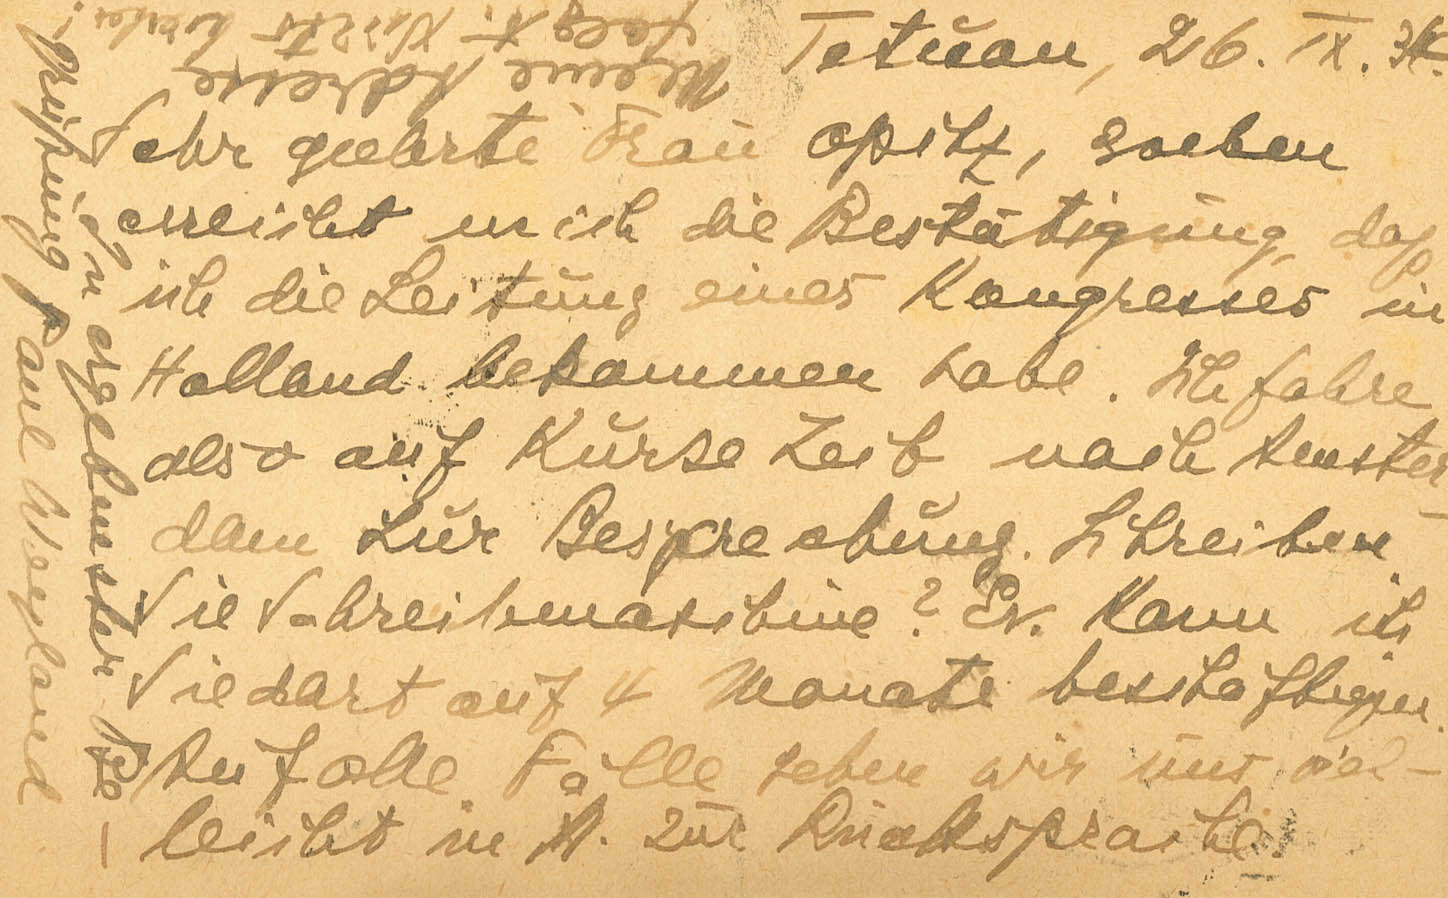 Tetuan, 26. IX. 34.
Sehr geehrte Frau Opitz, soeben
erreicht mich die Bestätigung, daß
ich die Leitung eines Kongresses in
Holland bekommen habe. Ich fahre
also auf kurze Zeit nach Amster-
dam zur Besprechung. Schreiben
Sie Schreibmaschine? Ev. kann ich
Sie dort auf 4 Monate beschäftigen.
Auf alle Fälle sehen wir uns viel-
leicht in A. zur Rücksprache.
In ergebenster Be-
grüßung Paul Weyland
Meine Adresse